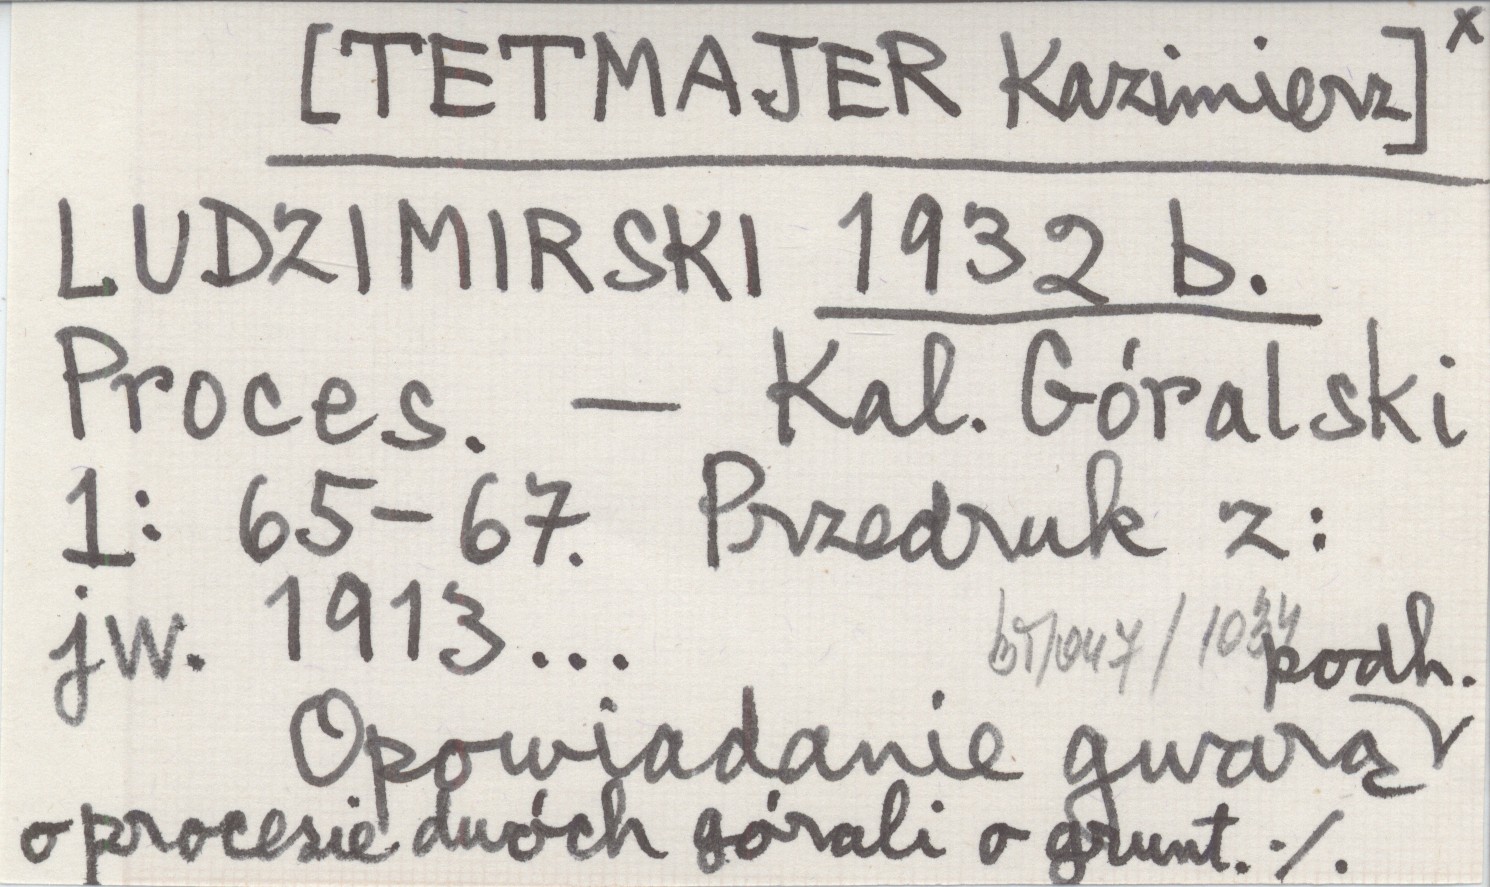 [TETMAJER Kazimierz] x
LUDZIMIRSKI 1932 b.
Proces. — Kal. Góralski
1: 65-67. Przedruk z:
jw. 1913... podh.
Opowiadanie gwarą
o procesie dwóch górali o grunt. ./.